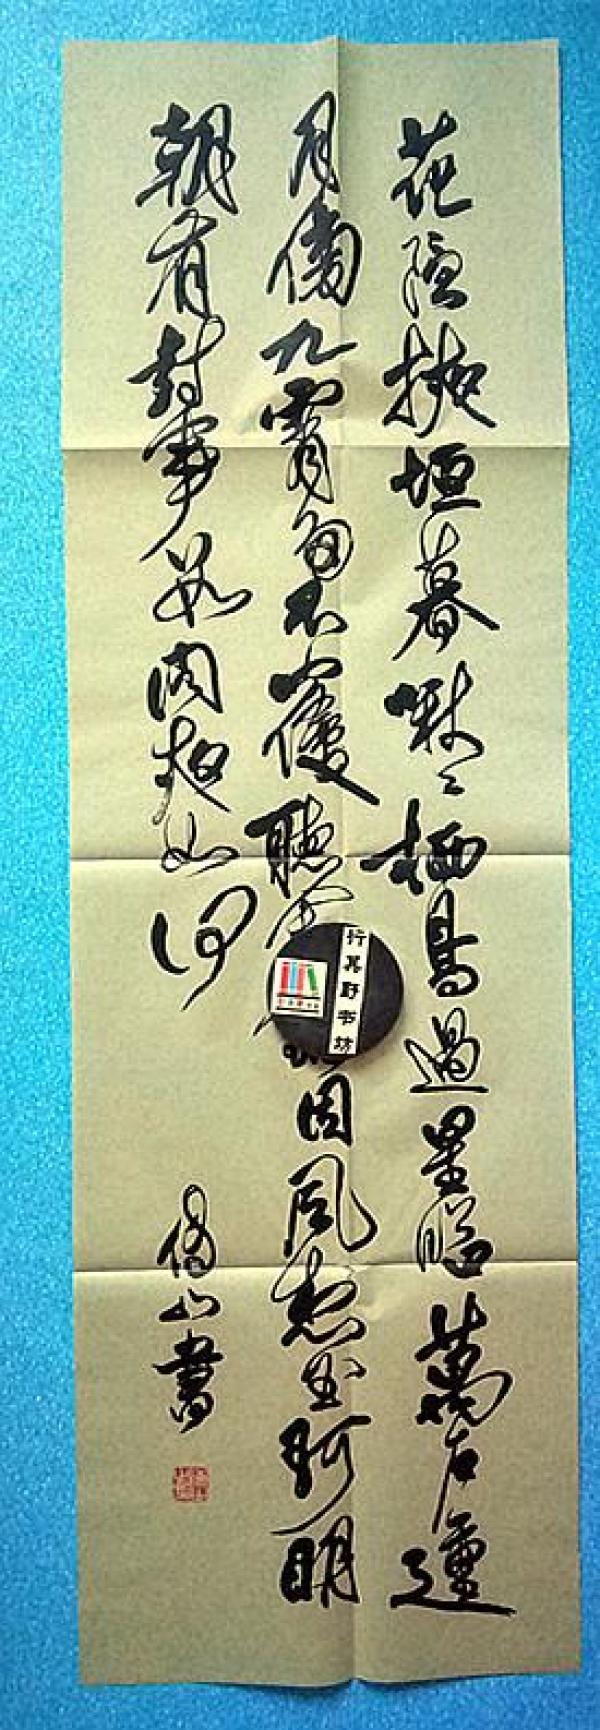 花隱掖垣暮啾〻栖鳥過星臨萬户
月傍九霄多不寢聽因風想玉珂明
朝有封事數問夜如何
傅山書
行其野书坊